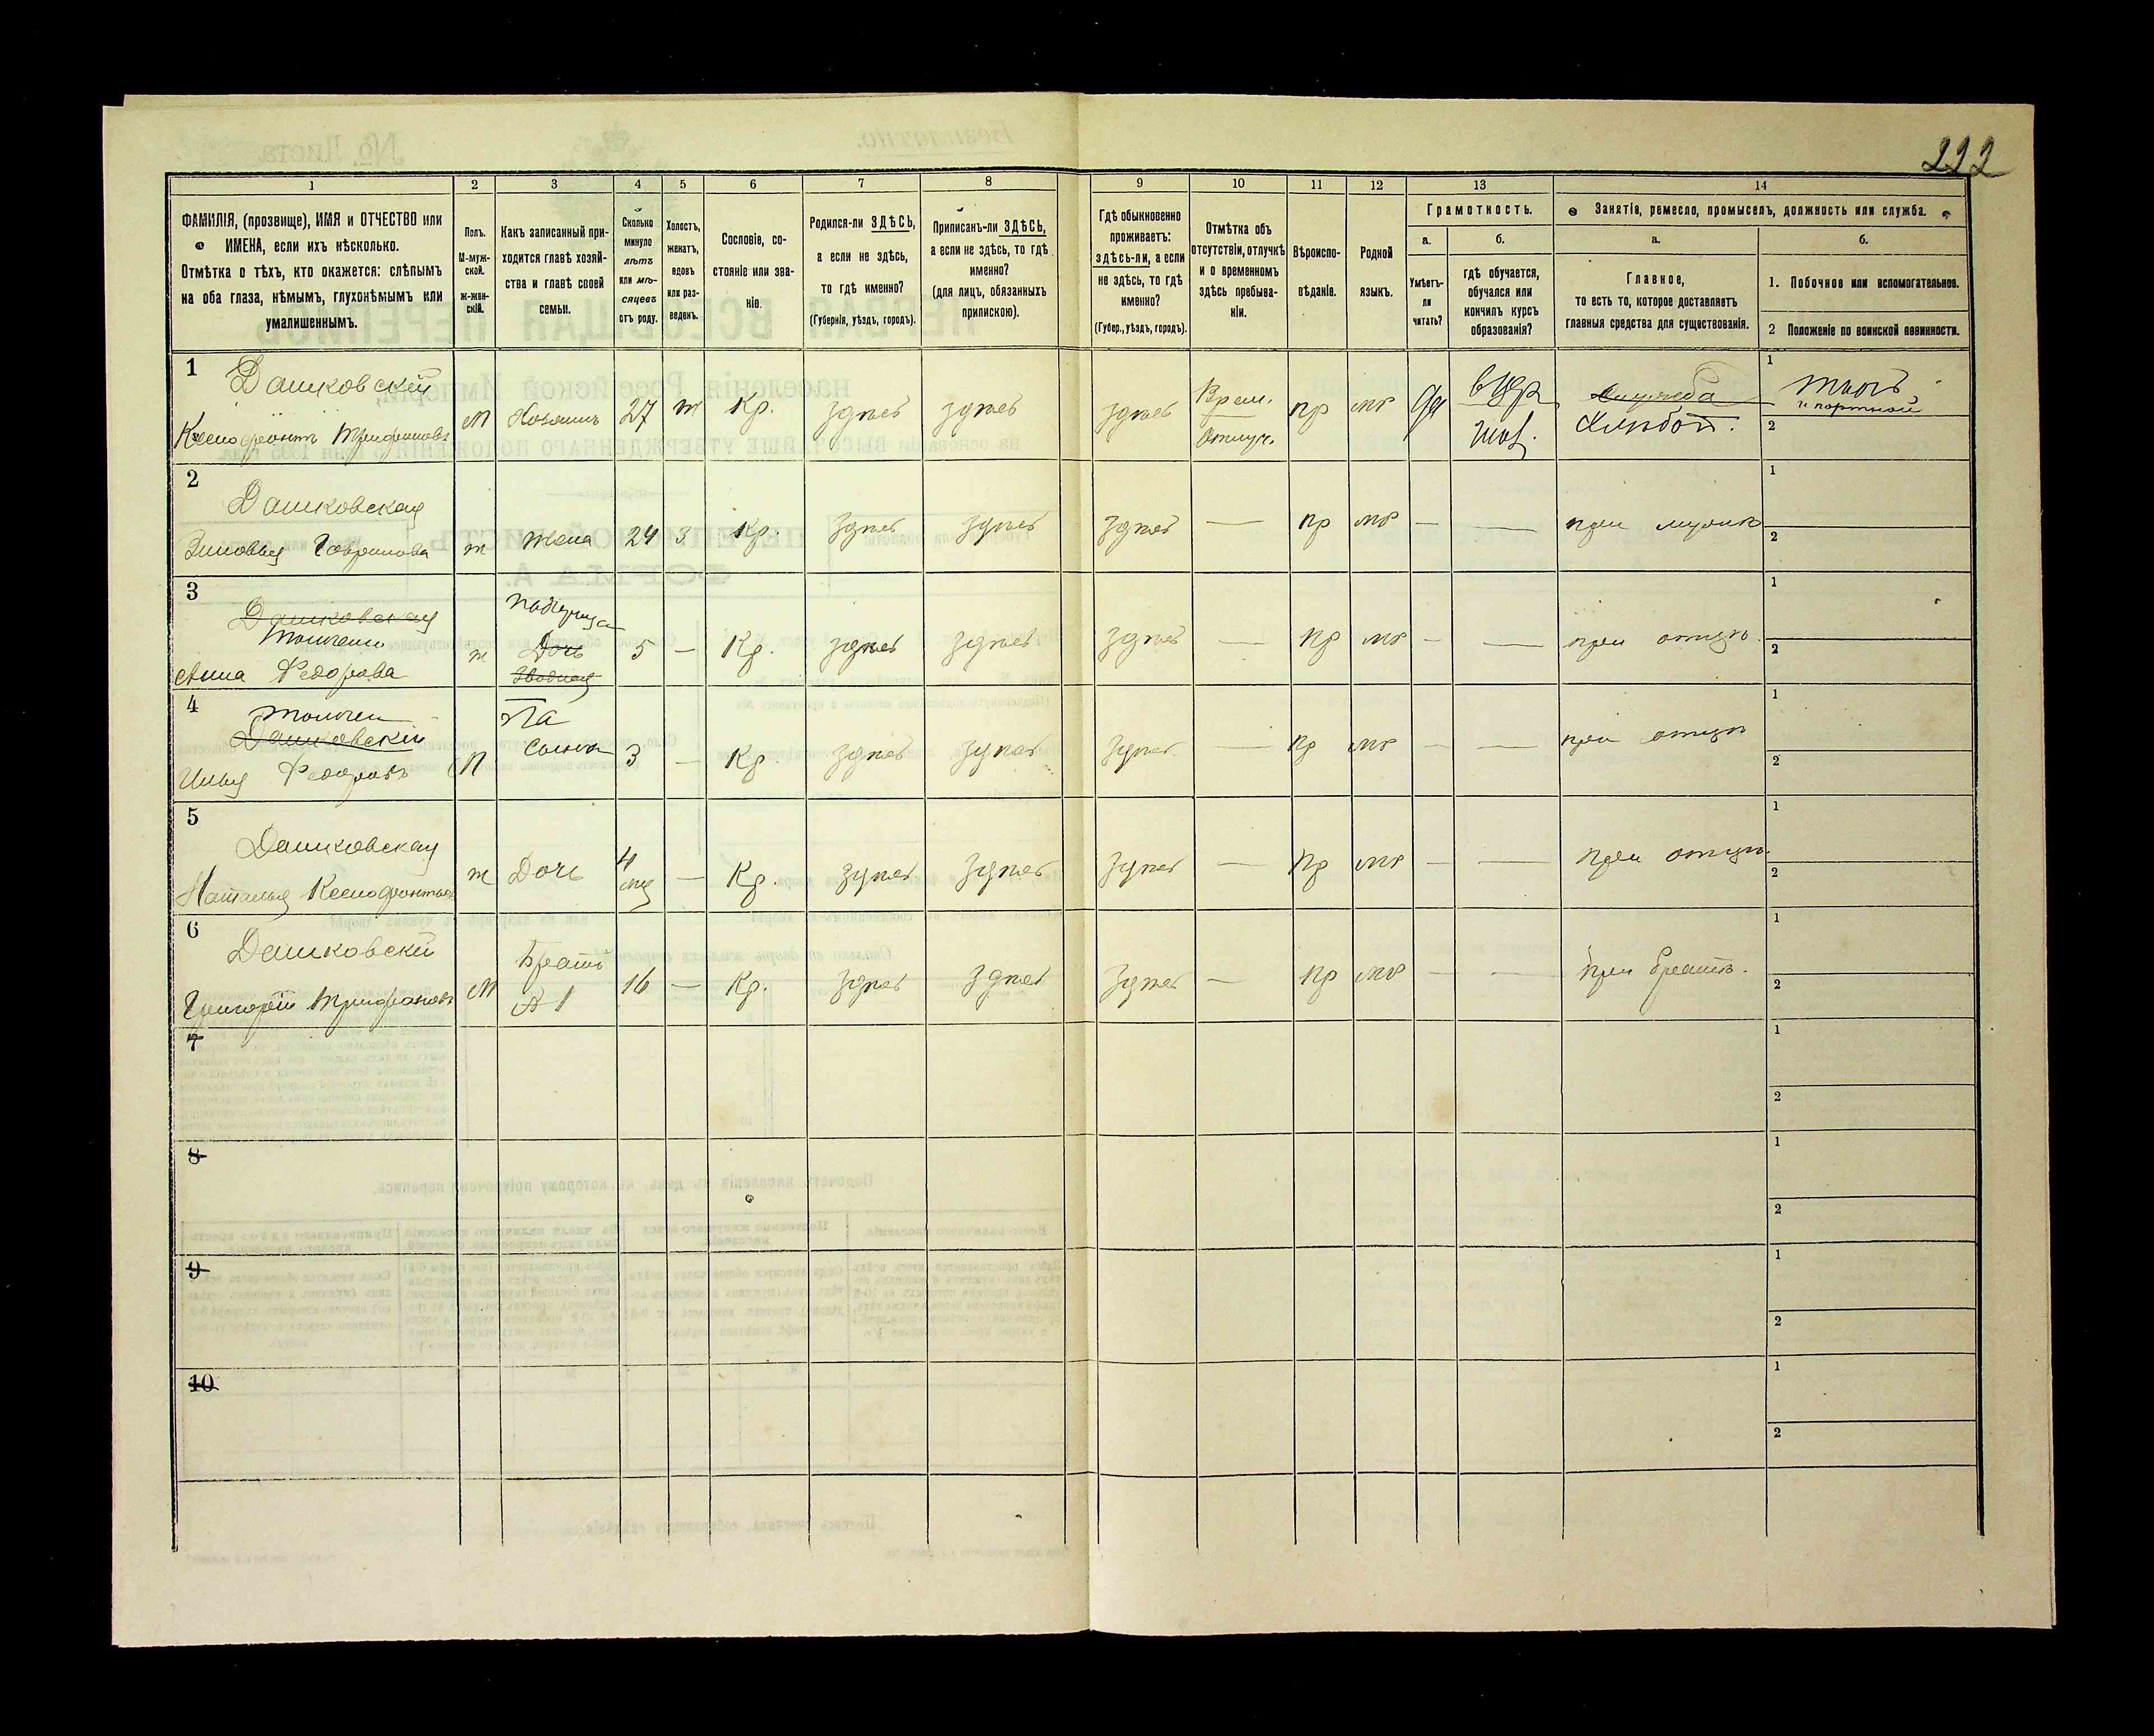 222
1
2
3
4
5
6
7
8
9
10
11
12
13
14
ФАМИЛІЯ, (прозвище), ИМЯ и ОТЧЕСТВО или
ИМЕНА, если ихъ нѣсколько.
Отмѣтка о тѣхъ, кто окажется: слѣпымъ
на оба глаза, нѣмымъ, глухонѣмымъ или
умалишеннымъ.
Полъ.
М-муж-
ской.
ж-жен-
скій.
Какъ записанный при-
ходится главѣ хозяй-
ства и главѣ своей
семьи.
Сколько
минуло
лѣтъ
или мѣ-
сяцевъ
отъ роду.
Холостъ,
женатъ,
вдовъ
или раз-
веденъ.
Сословіе, со-
стояніе или зва-
ніе.
Родился-ли ЗДѢСЬ,
а если не здѣсь,
то гдѣ именно?
(Губернія, уѣздъ, городъ).
Приписанъ-ли ЗДѢСЬ,
а если не здѣсь, то гдѣ
именно?
(для лицъ, обязанныхъ
припискою).
Гдѣ обыкновенно
проживаетъ:
здѣсь-ли, а если
не здѣсь, то гдѣ
именно?
(Губер., уѣздъ, городъ).
Отмѣтка объ
отсутствіи, отлучкѣ
и о временномъ
здѣсь пребыва-
ніи.
Вѣроиспо-
вѣданіе.
Родной
языкъ.
Грамотность.
а.
Умѣетъ-
ли
читать?
б.
гдѣ обучается,
обучался или
кончилъ курсъ
образованія?
Занятіе, ремесло, промыселъ, должность или служба.
а.
Главное,
то есть то, которое доставляетъ
главныя средства для существованія.
б.
1. Побочное или вспомогательное.
2 Положеніе по воинской повинности.
1
Дашковскій
Ксенофонтъ Трифоновъ
М
Хозяинъ
27
ж
Кр.
здѣсь
здѣсь
здѣсь
Врем.
Отлуч.
пр
мр
да
Служба
Хлѣбоп.
1
и портной
2
2
Дашковская
Зиновья Гаврилова
ж
Жена
24
З
Кр.
здѣсь
здѣсь
здѣсь
—
пр
мр
—
—
при мужѣ
1
2
3
Дашковская
Анна Федорова
ж
Падчерица
Дочь
5
—
Кр.
здѣсь
здѣсь
здѣсь
—
пр
мр
—
—
при отцѣ
1
2
4
Дашковскій
Илья Федоровъ
М
Сынъ
3
—
Кр.
здѣсь
здѣсь
здѣсь
—
пр
мр
—
—
при отцѣ
1
2
5
Дашковская
Наталья Ксенофонтьев
ж
Дочь
4
—
Кр.
здѣсь
здѣсь
здѣсь
—
пр
мр
—
—
при отцѣ
1
2
6
Дашковскій
Григорій Трифоновъ
М
Братъ
№ 1
16
—
Кр.
здѣсь
здѣсь
здѣсь
—
пр
мр
—
—
при братѣ.
1
2
7
1
2
8
1
2
9
1
2
10
1
2